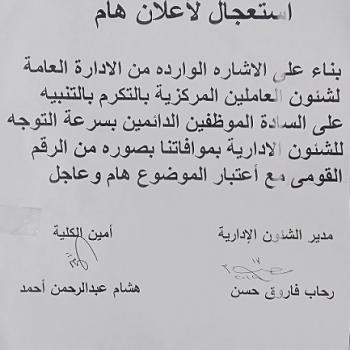 استعجال لاعلان هام
بناء على الاشاره الوارده من الادارة العامة
لشئون العاملين المركزية بالتكرم بالتنبيه
على السادة الموظفين الدائمين بسرعة التوجه
للشئون الادارية بموافاتنا بصوره من الرقم
القومى مع أعتبار الموضوع هام وعاجل
مدير الشئون الإدارية
أمين الكلية
رحاب فاروق حسن
هشام عبدالرحمن أحمد